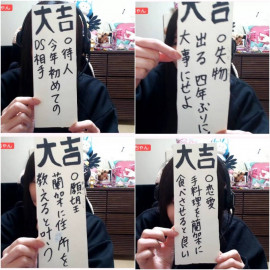 大吉
○待人
今年初めての
DS相手
大吉
○失物
出る 四年ぶりに、
大事にせよ
大吉
○願望
蘭架に住所を
教えると叶う
大吉
○恋愛
手料理を蘭架に
食べさせると良い